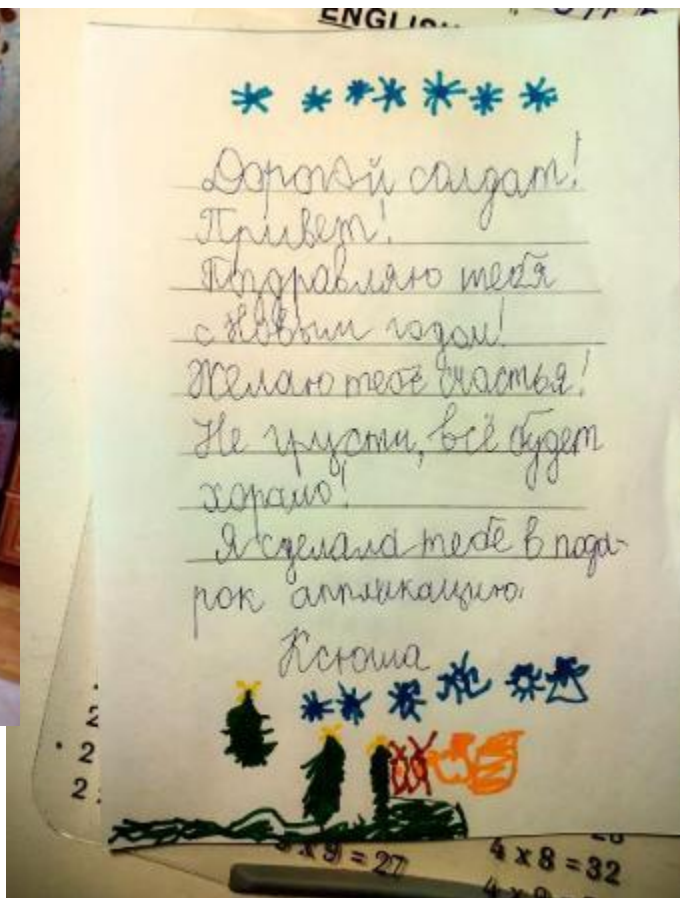 ENGLI
Дорогой солдат!
Привет!
Поздравляю тебя
с Новым годом!
Желаю тебе счастья!
Не грусти, всё будет
хорошо!
Я сделала тебе в пода-
рок аппликацию.
Ксюша
2
2
2
3 x 9 = 27
4 x 8 = 32